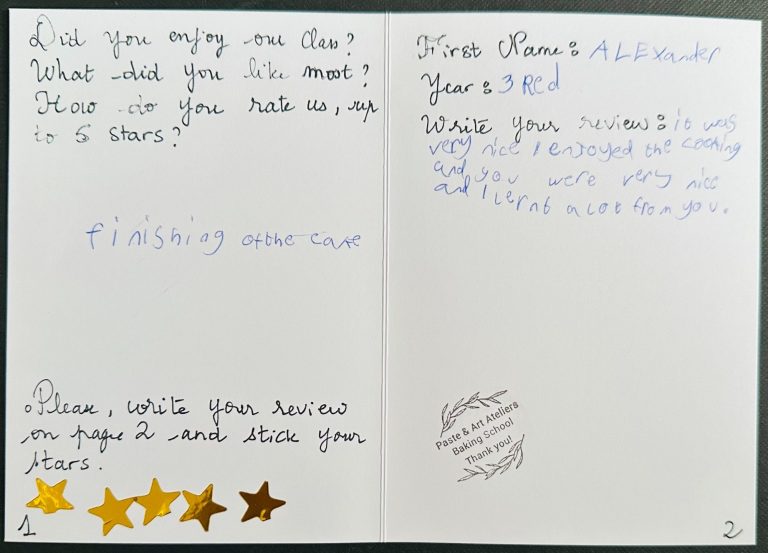 Did you enjoy our Class?
What did you like most?
How do you rate us, up
to 5 stars?
finishing of the cake
Please, write your review
on page 2 and stick your
stars.
1
First Name: ALEXander
Year: 3 Red
Write your review: it was
very nice I enjoyed the cooking
and you were very nice
and I lernt a lot from you.
Paste & Art Ateliers
Baking School
Thank you!
2